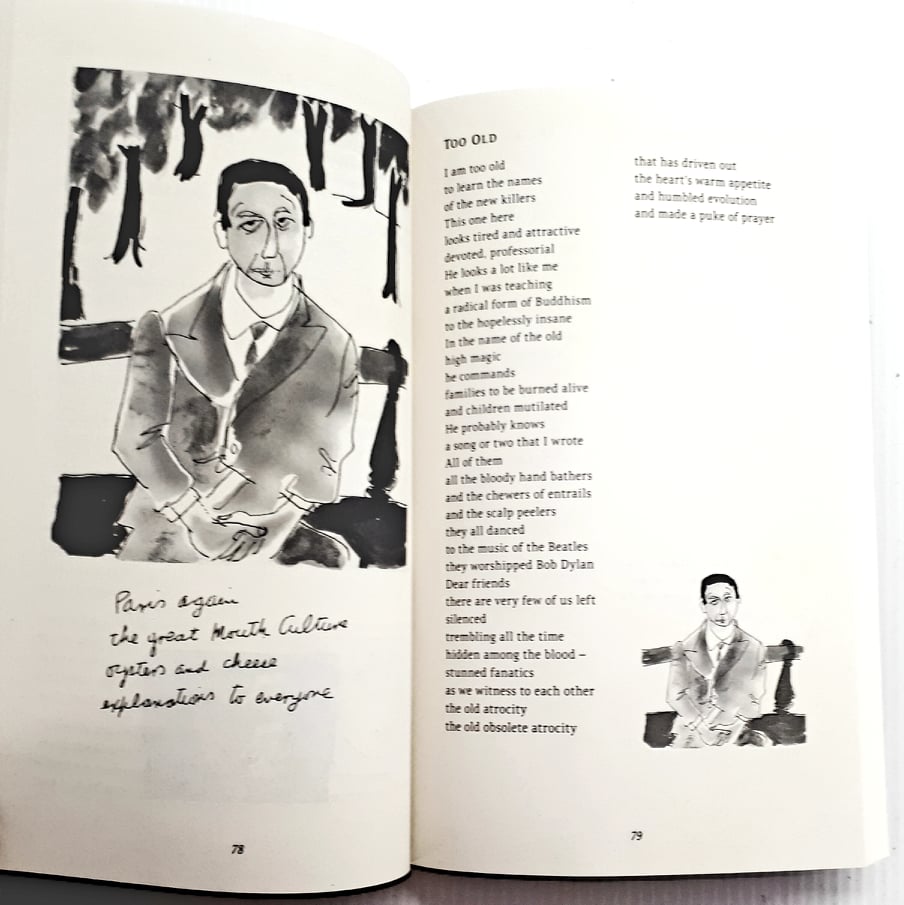 Paris again
the great Mouth Culture
oysters and cheese
explanations to everyone
78
TOO OLD
I am too old
to learn the names
of the new killers
This one here
looks tired and attractive
devoted, professorial
He looks a lot like me
when I was teaching
a radical form of Buddhism
to the hopelessly insane
In the name of the old
high magic
he commands
families to be burned alive
and children mutilated
He probably knows
a song or two that I wrote
All of them
all the bloody hand bathers
and the chewers of entrails
and the scalp peelers
they all danced
to the music of the Beatles
they worshipped Bob Dylan
Dear friends
there are very few of us left
silenced
trembling all the time
hidden among the blood –
stunned fanatics
as we witness to each other
the old atrocity
the old obsolete atrocity
that has driven out
the heart's warm appetite
and humbled evolution
and made a puke of prayer
79